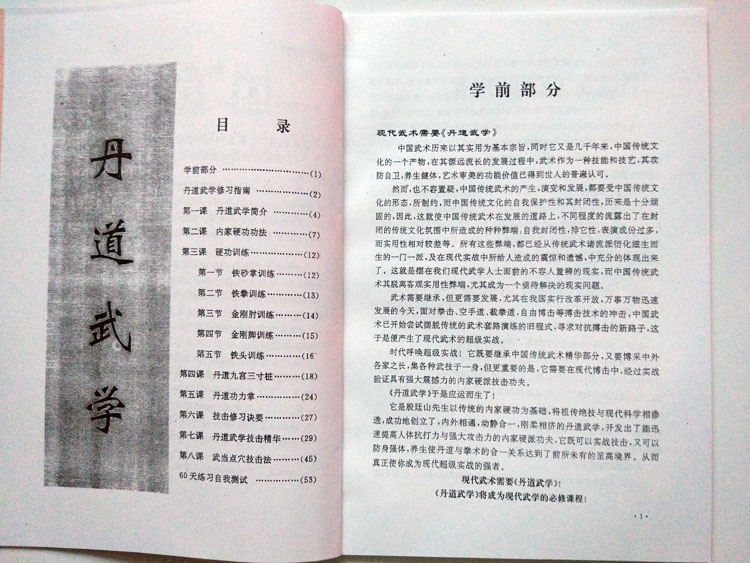 丹道武学
目 录
学前部分 ……………………(1)
丹道武学修习指南 …………(2)
第一课 丹道武学简介 ………(4)
第二课 内家硬功功法 ………(7)
第三课 硬功训练 ……………(12)
第一节 铁砂掌训练 …………(12)
第二节 铁拳训练 ……………(13)
第三节 金刚肘训练 …………(14)
第四节 金刚脚训练 …………(15)
第五节 铁头训练 ……………(16)
第四课 丹道九宫三寸桩 ……(18)
第五课 丹道功力掌 …………(24)
第六课 技击修习诀要 ………(27)
第七课 丹道武学技击精华 …(29)
第八课 武当点穴技击法 ……(45)
60天练习自我测试 …………(53)
学前部分
现代武术需要《丹道武学》
中国武术历来以其实用为基本宗旨，同时它又是几千年来，中国传统文
化的一个产物，在其源远流长的发展过程中，武术作为一种技能和技艺，其攻
防自卫，养生健体，艺术审美的功能价值已得到世人的普遍认可。
然而，也不容置疑，中国传统武术的产生，演变和发展，都要受中国传统文
化的形态，所制约，而中国传统文化的自我保护性和其封闭性，历来是十分顽
固的，因此，这就使中国传统武术在发展的道路上，不同程度的流露出了在封
闭的传统文化氛围中所造成的种种弊端，自我封闭性，排它性，表演成份过多，
而实用性相对较差等。所有这些弊端，都已经从传统武术诸流派衍化滋生而
生的一门一派，及在现代实战中所给人造成的震惊和遗憾，中充分的体现出来
了。这就是摆在我们现代武学人士面前的不容人置辨的现实，而中国传统武
术其脱离客观实用性弊端，尤其成为一个亟待解决的现实问题。
武术需要继承，但更需要发展，尤其在我国实行改革开放，万事万物迅速
发展的今天，面对拳击、空手道、截拳道、自由搏击等搏击技术的冲击，中国武
术已开始尝试摆脱传统的武术套路演练的旧程式，寻求对抗搏击的新路子，这
于是便产生了现代武术的超级实战。
时代呼唤超级实战！它既要继承中国传统武术精华部分，又要博采中外
各家之长，集各种武技于一身，但更重要的是，它需要在现代搏击中，经过实战
验证具有强大震撼力的内家硬派技击功夫。
《丹道武学》于是应运而生了！
它是殷廷山先生以传统的内家硬功为基础，将祖传绝技与现代科学相渗
透，成功地创立了，内外相通，动静合一，刚柔相济的丹道武学，开发出了能迅
速提高人体抗打力与强大攻击力的内家硬派功夫，它既可以实战技击，又可以
防身强体，养生使丹道与拳术的合一关系达到了前所未有的至高境界。从而
真正使你成为现代超级实战的强者。
现代武术需要《丹道武学》！
《丹道武学》将成为现代武学的必修课程！
·1·